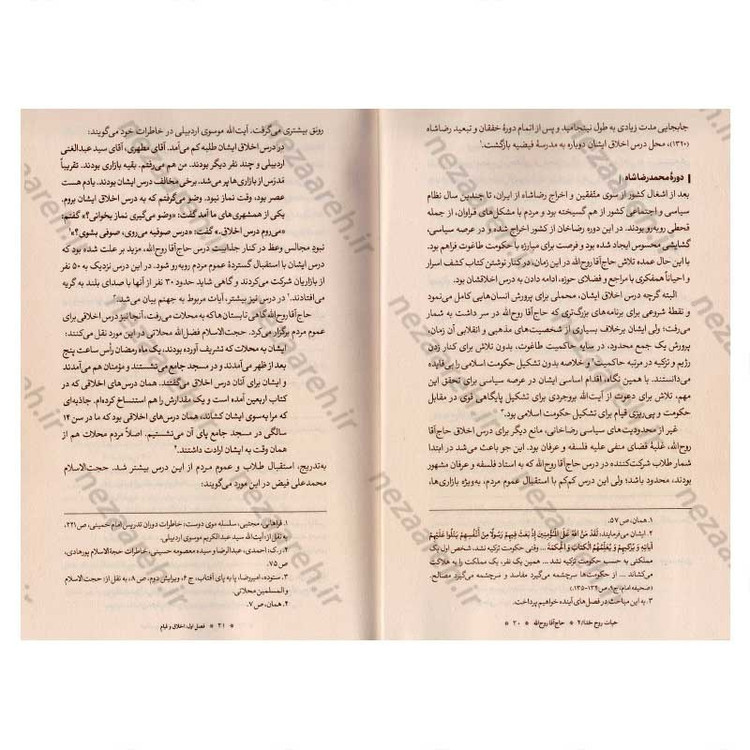 جابجایی مدت زیادی به طول نینجامید و پس از اتمام دورهٔ خفقان و تبعید رضاشاه
(۱۳۲۰)، محل درس اخلاق ایشان دوباره به مدرسهٔ فیضیه بازگشت.¹
دورهٔ محمدرضاشاه
بعد از اشغال کشور از سوی متّفقین و اخراج رضاشاه از ایران، تا چندین سال نظام
سیاسی و اجتماعی کشور از هم گسیخته بود و مردم با مشکل‌های فراوان، از جمله
قحطی روبه‌رو بودند. در این دوره رضاخان از کشور اخراج شده و در عرصه سیاسی،
گشایشی محسوس ایجاد شده بود و فرصت برای مبارزه با حکومت طاغوت فراهم بود.
با این حال عمده تلاش حاج‌آقا روح‌الله در این زمان، در کنار نوشتن کتاب کشف اسرار
و احیاناً همفکری با مراجع و فضلای حوزه، ادامه دادن به درس اخلاقشان بود.
البته گرچه درس اخلاق ایشان، محملی برای پرورش انسان‌هایی کامل می‌نمود
و نقطهٔ شروعی برای برنامه‌های بزرگ‌تری که حاج‌آقا روح‌الله در سر داشت به شمار
می‌رفت؛ ولی ایشان برخلاف بسیاری از شخصیت‌های مذهبی و انقلابی آن زمان،
پرورش یک جمع محدود، در سایه حاکمیت طاغوت، بدون تلاش برای کنار زدن
رژیم و تزکیه در مرتبه حاکمیت² و خلاصه بدون تشکیل حکومت اسلامی را بی‌فایده
می‌دانستند. با همین نگاه، اقدام اساسی ایشان در عرصه سیاسی برای تحقق این
مهم، تلاش برای دعوت از آیت‌الله بروجردی برای تشکیل پایگاهی قوی در مقابل
حکومت و پی‌ریزی قیام برای تشکیل حکومت اسلامی بود.³
غیر از محدودیت‌های سیاسی رضاخانی، مانع دیگر برای درس اخلاق حاج‌آقا
روح‌الله، غلبهٔ فضای منفی علیه فلسفه و عرفان بود. این جو باعث می‌شد در ابتدا
شمار طلاب شرکت‌کننده در درس حاج‌آقا روح‌الله که به استاد فلسفه و عرفان مشهور
بودند، محدود باشد؛ ولی این درس کم‌کم با استقبال عموم مردم، به‌ویژه بازاری‌ها،
۱. همان، ص ۵۷.
۲. ایشان می‌فرمایند: لَقَدْ مَنَّ اللهُ عَلَی الْمُؤْمِنِینَ إِذْ بَعَثَ فِیهِمْ رَسُولاً مِنْ أَنْفُسِهِمْ یَتْلُوا عَلَیْهِمْ
آیَاتِهِ وَ یُزَکِّیهِمْ وَ یُعَلِّمُهُمُ الْکِتَابَ وَ الْحِکْمَةَ ... وقتی حکومت تزکیه نشد، شخص اول یک
مملکتی به حسب حکومت تزکیه نشد ... همین یک نفر، یک مملکت را به هلاکت
می‌کشاند ... از حکومت‌ها سرچشمه می‌گیرد مفاسد و سرچشمه می‌گیرد مصالح.
(صحیفه امام، ج ۹، ص ۱۳۴-۱۳۵)
۳. به این مباحث در فصل‌های آینده خواهیم پرداخت.
حیات روح خدا/۲ * حاج‌آقا روح‌الله * ۳۰ *
رونق بیشتری می‌گرفت، آیت‌الله موسوی اردبیلی در خاطرات خود می‌گویند:
در درس اخلاق ایشان طلبه کم می‌آمد. آقای مطهری، آقای سید عبدالغنی
اردبیلی و چند نفر دیگر بودند. من هم می‌رفتم. بقیه بازاری بودند. تقریباً
مَدرَس از بازاری‌ها پر می‌شد. برخی مخالف درس ایشان بودند. یادم هست
عصر بود، وقت نماز نبود. وضو می‌گرفتم که به درس اخلاق ایشان بروم.
یکی از همشهری‌های ما آمد گفت: «وضو می‌گیری نماز بخوانی؟» گفتم:
«می‌روم درس اخلاق.» گفت: «درس صوفیه می‌روی، صوفی بشوی؟»¹
نبودِ مجالس وعظ در کنار جذابیت درس حاج‌آقا روح‌الله، مزید بر علت شده بود که
درس ایشان با استقبال گستردهٔ عموم مردم روبه‌رو شود. در این درس نزدیک به ۵۰ نفر
از بازاریان شرکت می‌کردند و گاهی شاید حدود ۳۰ نفر از آنها با صدای بلند به گریه
می‌افتادند.² در درس نیز بیشتر، آیات مربوط به جهنم بیان می‌شد.³
حاج‌آقا روح‌الله گاهی تابستان ها که به محلات می‌رفت، آنجا نیز درس اخلاقی برای
عموم مردم برگزار می‌کرد. حجت‌الاسلام فضل‌الله محلاتی در این مورد نقل می‌کنند:
ایشان به محلات که تشریف آورده بودند، یک ماه رمضان رأس ساعت پنج
بعد از ظهر می‌آمدند و در مسجد جامع می‌نشستند و مؤمنان هم می‌آمدند
و ایشان برای آنان درس اخلاق می‌گفتند. همان درس‌های اخلاقی که در
کتاب اربعین آمده است و یک مقدارش را هم استنساخ کرده‌ام. جاذبه‌ای
که مرا به‌سوی ایشان کشاند، همان درس‌های اخلاقی بود که ما در سن ۱۴
سالگی در مسجد جامع پای آن می‌نشستیم. اصلاً مردم محلات هم از
همان وقت به ایشان ارادت داشتند.⁴
به‌تدریج، استقبال طلاب و عموم مردم از این درس بیشتر شد. حجت‌الاسلام
محمدعلی فیض در این مورد می‌گویند:
۱. فراهانی، مجتبی، سلسله موی دوست: خاطرات دوران تدریس امام خمینی، ص ۲۲۱،
به نقل از: آیت‌الله سید عبدالکریم موسوی اردبیلی.
۲. ر.ک: احمدی، عبدالرضا و سیده معصومه حسینی، خاطرات حجةالاسلام پورهادی،
ص ۷۵.
۳. ستوده، امیررضا، پا به پای آفتاب، ج ۶، ویرایش دوم، ص ۸، به نقل از: حجت‌الاسلام
و المسلمین محلاتی.
۴. همان، ص ۷.
* ۳۱ * فصل اول: اخلاق و قیام
nezaareh.ir